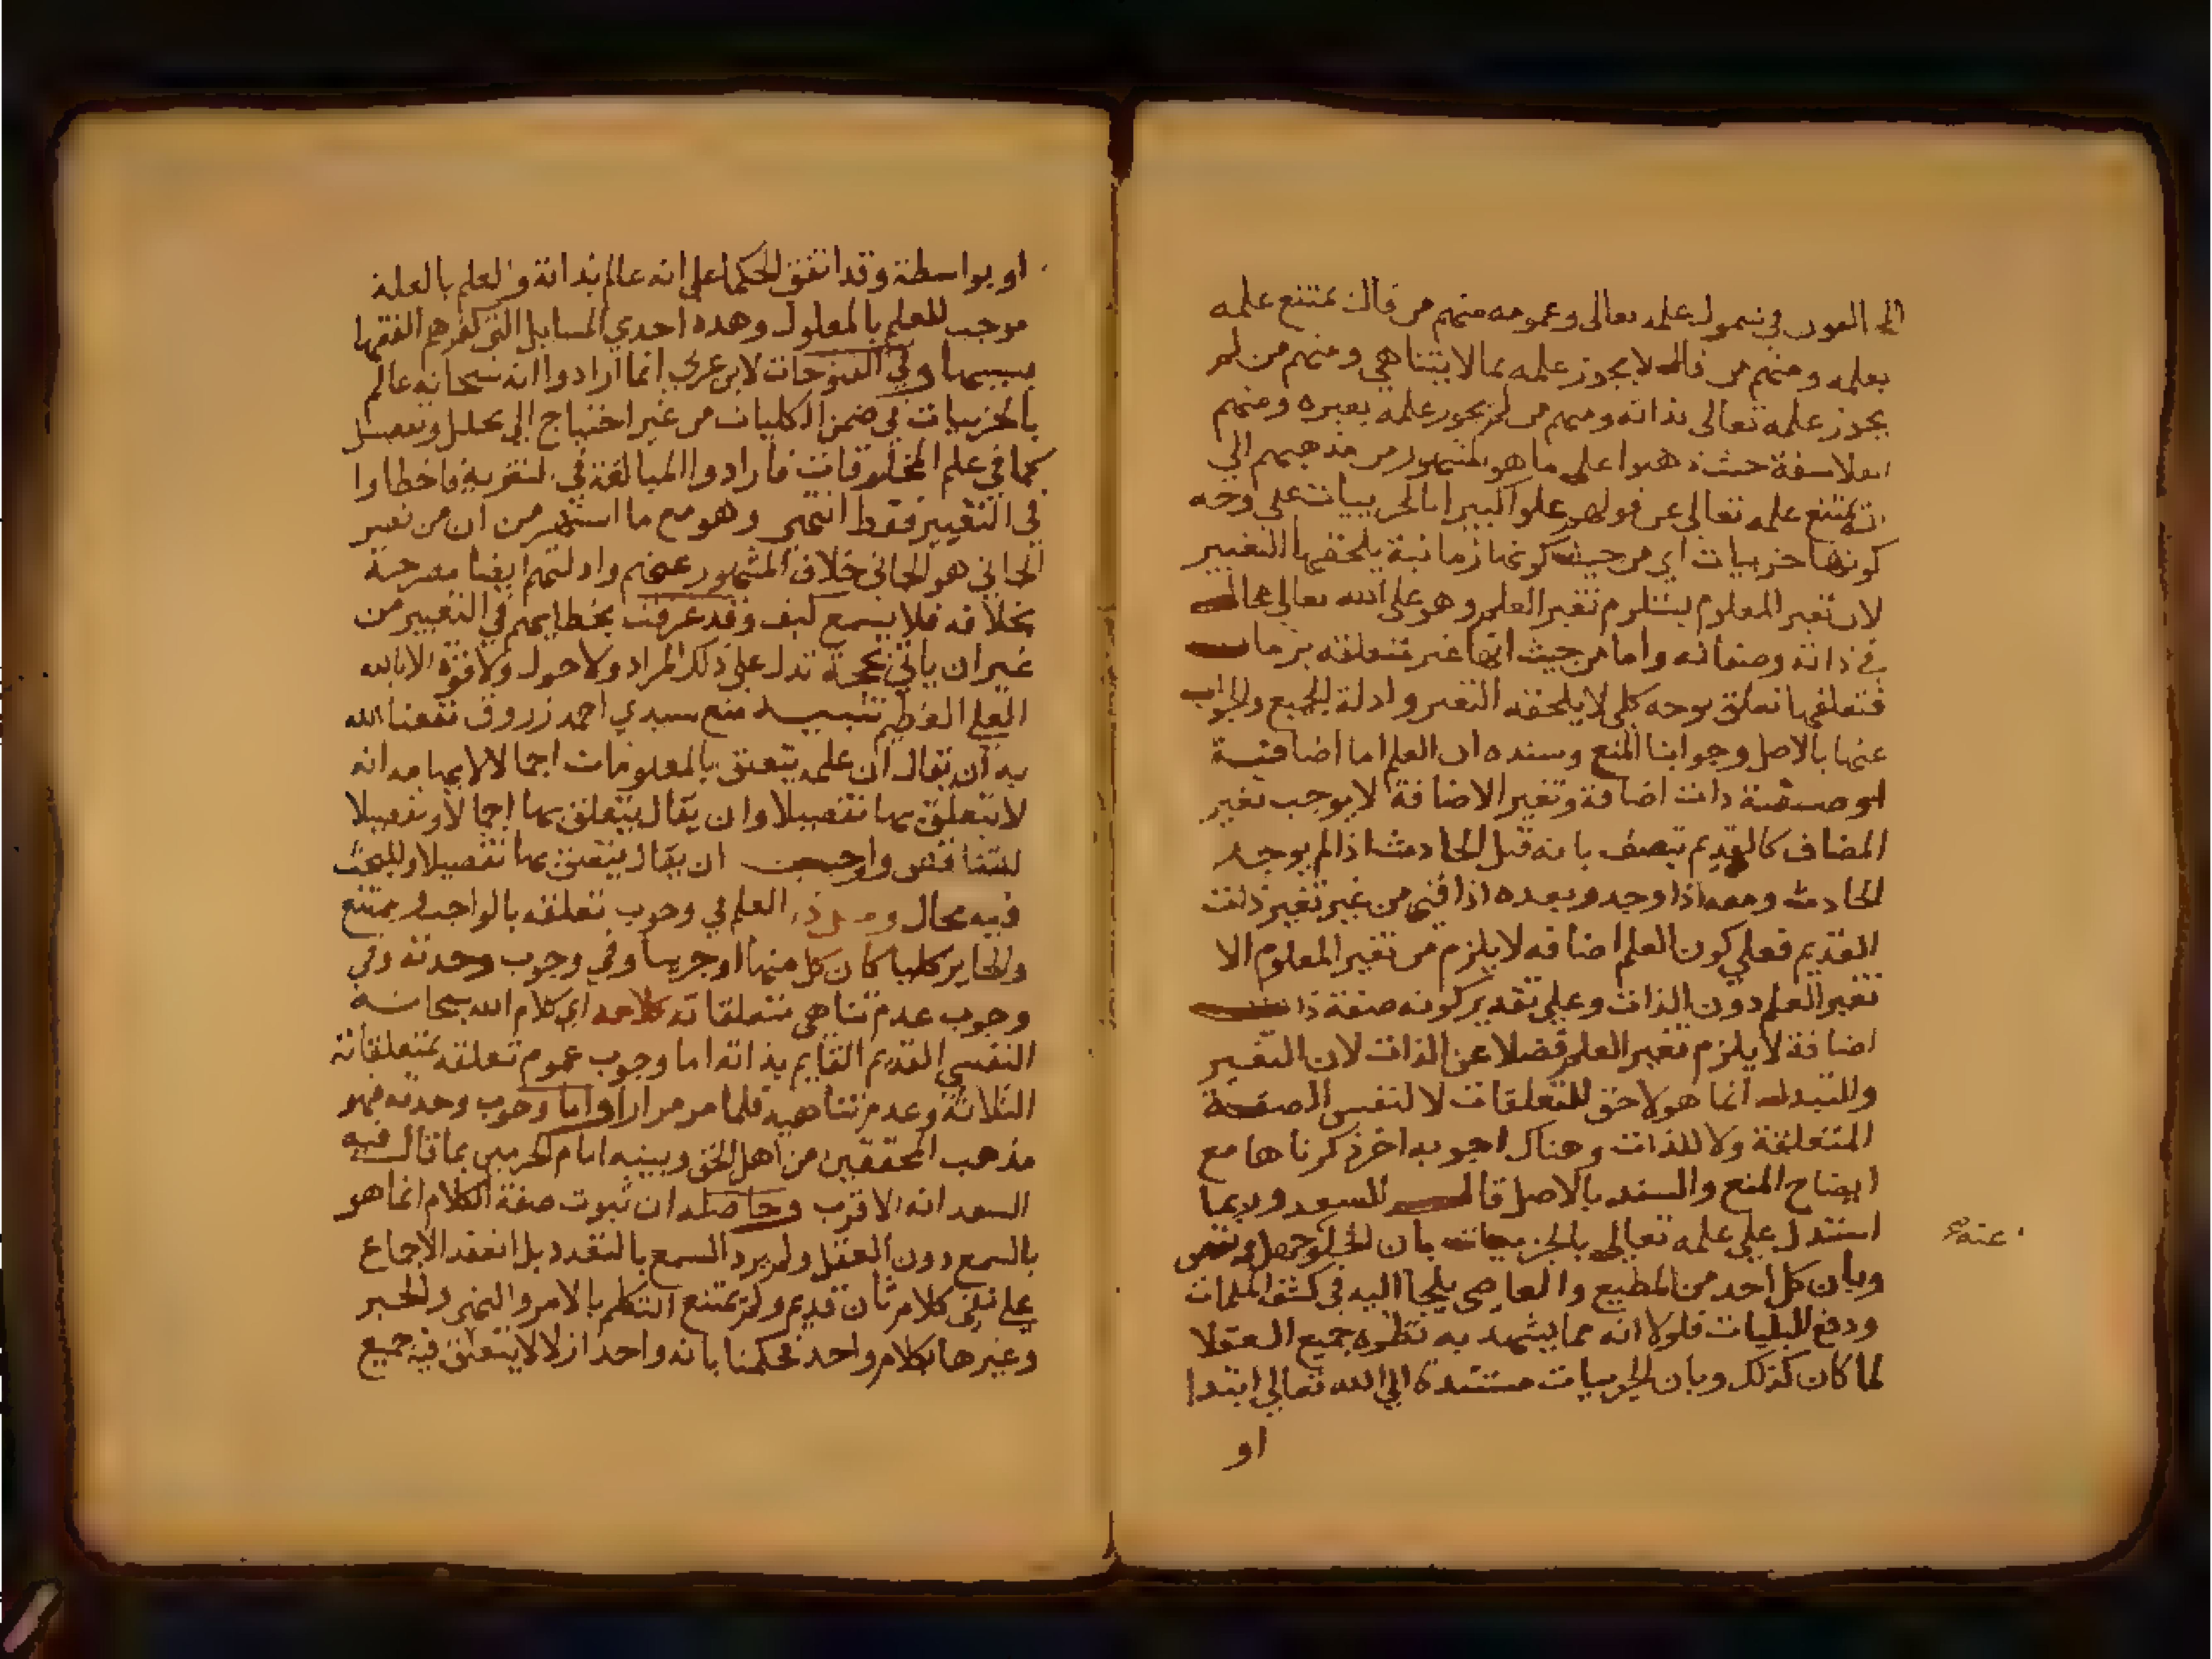 المخالفون في شمول علمه تعالى وعمومه منهم من قال يمتنع علمه
بعلمه ومنهم من قال لا يجوز علمه بما لا يتناهي ومنهم من لم
يجوز علمه تعالى بذاته ومنهم من لم يجوز علمه بغيره ومنهم
الفلاسفة حيث ذهبوا على ما هو المشهور من مذهبهم الي
انه يمتنع علمه تعالى عن قولهم علوا كبيرا بالجزييات على وجه
كونها جزييات اي من حيث كونها زمانية يلحقها التغيير
لان تغير المعلوم يستلزم تغير العلم وهو على الله تعالى محال
في ذاته وصفاته واما من حيث انها غير متعلقة بزمان
فتعلقها تعلق بوجه كلى لا يلحقه التغير وادلة الجميع والجواب
عنها بالاصل وجوابنا المنع وسنده ان العلم اما اضافية
او صفة ذات اضافة وتغير الاضافة لا يوجب تغير
المضاف كالقديم يتصف بانه قبل الحادث اذا لم يوجد
الحادث ومعه اذا وجد وبعده اذا فني من غير تغير ذلت
القديم فعلي كون العلم اضافه لا يلزم من تغير المعلوم الا
تغير العلم دون الذات وعلى تقدير كونه صفة ذات
اضافة لا يلزم تغير العلم فضلا عن الذات لان التغير
والتبدل انما هو لاحق للتعلقات لا لنفس الصفة
المتعلقة ولا للذات وهناك اجوبه اخر ذكرناها مع
ايضاح المنع والسند بالاصل قال السعد وربما
استدل على علمه تعالى بالجزييات بان الخلو جهل ونقص
عنه
وبان كل احد من المطيع والعاصي يلجا اليه في كشف الملمات
ودفع البليات فلولا انه مما يشهد به نظره جميع العقلا
لما كان كذلك وبان الجزييات مستندة الي الله تعالى ابتدا
او
او بواسطة وقد اتفق الحكما على انه عالم بذاته والعلم بالعلة
موجب للعلم بالمعلول وهذه احدي المسايل التي كفرهم الفقها
بسببها وفي الفتوحات لابن عربي انما ارادوا انه سبحانه عالم
بالجزييات في ضمن الكليات من غير احتياج الي تحليل وتفصيل
كما في علم المخلوقات فارادوا المبالغة في التنزيه فاخطاوا
في التغيير فقط انتهى وهو مع ما اشتهر من ان من تغير
الجاني هو الجاني خلاف المشهور عنهم وادلتهم ايضا مصرحة
بخلافه فلا يسمع كيف وقد عرفت بخطايهم في التغيير من
غير ان ياتي بحجة تدل على ذلك المراد ولا حول ولا قوة الا بالله
العلي العظيم تنبيه منع سيدي احمد زروق نفعنا الله
به ان يقال ان علمه يتعلق بالمعلومات اجمالا لايهامه انه
لا يتعلق بها تفصيلا وان يقال يتعلق بها اجمالا وتفصيلا
للتناقض واوجب ان يقال يتعلق بها تفصيلا والبحث
فيه مجال العلم في وجوب تعلقه بالواجب والممتنع
والجايز كليا كان كل منها او جزييا وفي وجوب وحدته وفي
وجوب عدم تناهي متعلقاته كلامه اي كلام الله سبحانه
النفسي القديم القايم بذاته اما وجوب عموم تعلقه بمتعلقاته
الثلاثة وعدم تناهيه فلما مر مرارا واما وجوب وحدته فهو
مذهب المحققين من اهل الحق وبينه امام الحرمين بما قال فيه
السعد انه الاقرب وحاصله ان ثبوت صفة الكلام انما هو
بالسمع دون العقل ولم يرد السمع بالتعدد بل انعقد الاجماع
علي نفي كلام ثان قديم ولم يمتنع التكلم بالامر والنهي والخبر
وغيرها بكلام واحد فحكمنا بانه واحد ازلا لا يتعلق فيه جميع